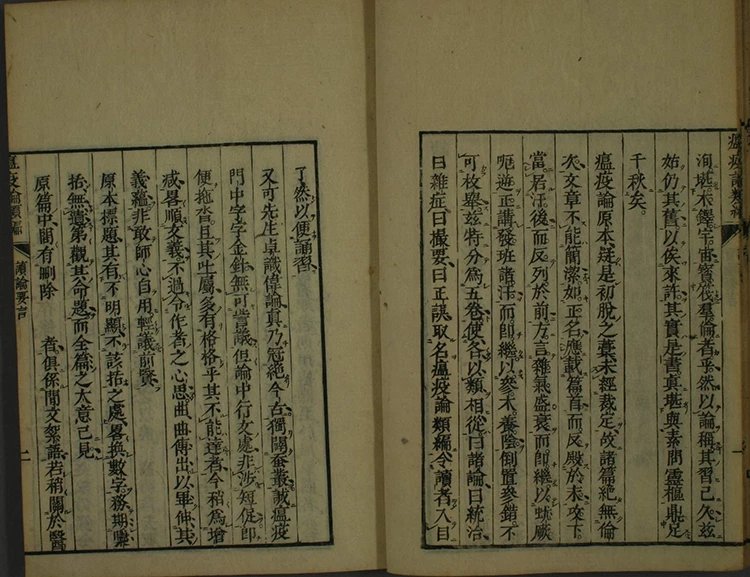 瘟疫論類編
洵堪木鐸宇宙寳筏羣倫者乎然以論稱其習已久兹
姑仍其舊以俟來許其實是書真堪與素問靈樞鼎足
千秋矣
瘟疫論原本疑是初脫之藁未經裁定故諸篇絶無倫
次文章不能簡潔如正名應載篇首而反殿於末攻下
當居汗後而反列於前方言雜氣盛衰而即繼以蚘厥
呃逆正講發斑諸汗而即繼以妄 養陰倒置參錯不
可枚舉兹特分爲五卷使各以類相從曰諸論曰統治
曰雜症曰撮要曰正誤取名瘟疫論類編令讀者入目
了然以便誦習
又可先生卓識偉論真乃冠絶今古獨闢蚕叢誠瘟疫
門中字字金針無可訾議但論中行文處非涉短促即
便拖沓且其吐屬多有格格乎其不能達者今稍爲增
减畧順文義不過令作者之心思曲曲傳出以畢伸其
義蘊非敢師心自用輕議前賢
原本標題其有不明顯不該括之處畧換數字務期
括無遺第觀其命題而全篇之大意已見
原篇中間有刪除 者俱係閒文絮語若稍關於醫
瘟疫論類編
讀論要言
二